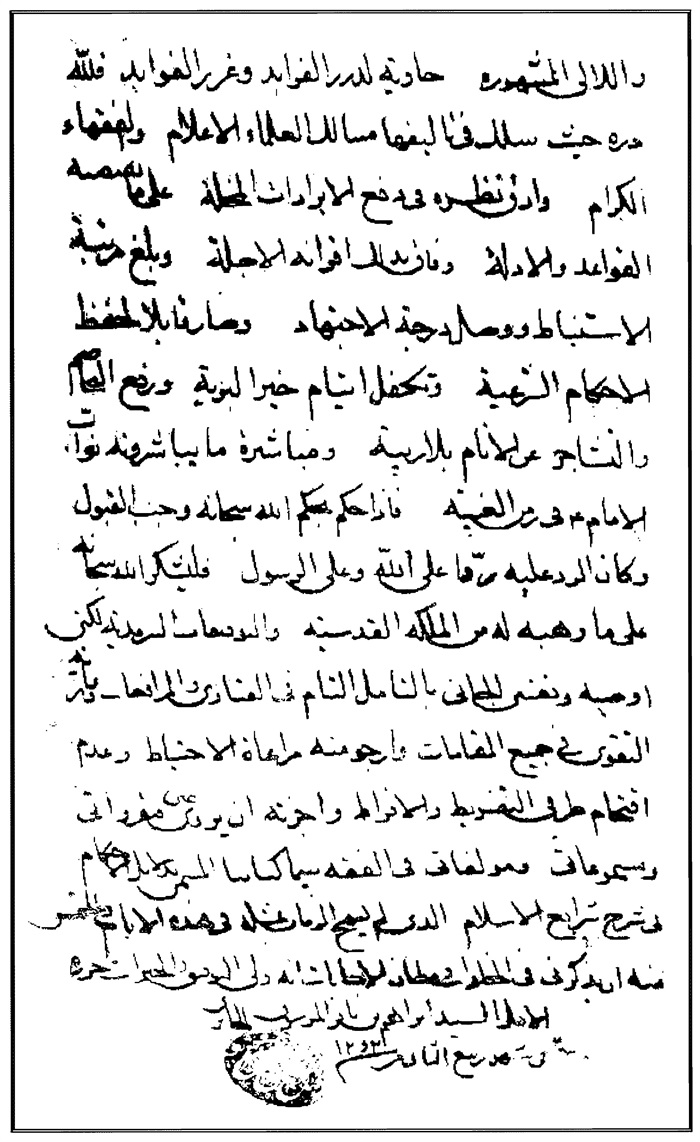 واللالى المشهوره حاوية لدرر الفوايد وغرر الفوايد فلله
دره حيث سلك فى تاليفها مسالك العلماء الاعلام والفقهاء
الكرام وادق نظره فى دفع الايرادات المخلة على ما تقتضيه
القواعد والادلة وفاق بذلك اقرانه الاجلة وبلغ مرتبة
الاستنباط ووصل درجة الاجتهاد وصار قابلا لحفظ
الاحكام الشرعية وتكفل ايتام خير البرية ورفع التخاصم
والتشاجر عن الانام بلا ريبة ومباشرة ما يباشرونه نواب
الامام ع فى زمن الغيبه فاذا حكم بحكم الله سبحانه وجب القبول
وكان الرد عليه ردا على الله وعلى الرسول فليشكر الله سبحانه
على ما وهبه له من الملكه القدسيه والتوفيقات السرمدية لكنى
اوصيه ونفسى الجانى بالتامل التام فى الفتاوى والمرافعات
التقوى فى جميع المقامات وارجو منه مراعاة الاحتياط وعدم
اقتحام طرفى التفريط والافراط واجزته ان يروى عنى مقرواتى
ومسموعاتى ومولفاتى فى الفقه سيما كتابنا المسمى بدلايل الاحكام
فى شرح شرايع الاسلام الذى لم يسمح الزمان بمثله فى هذه الايام
منه ان يذكرنى فى الخلوات ومظان الاجابات انه ولى التوفيق الخيرات حرره
الاقل السيد ابراهيم بن باقر الموسوى
فى شهر ربيع الثانى